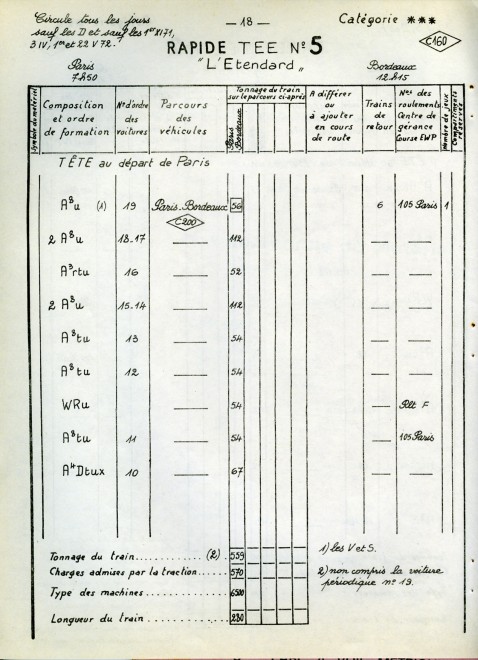 Circule tous les jours
sauf les D et sauf les 1er XI 71,
3 IV, 1er et 22 V 72.
— 18 —
Catégorie ***
C160
RAPIDE TEE N° 5
"L'Etendard"
Paris
7h50
Bordeaux
12h15
Symbole du matériel
Composition et ordre de formation
N° d'ordre des voitures
Parcours des véhicules
Tonnage du train sur le parcours ci-après
Paris Bordeaux
A différer ou à ajouter en cours de route
Trains de retour
Nos des roulements Centre de gérance Course EWP
Nombre de jeux
Compartiments réservés
TÊTE au départ de Paris
A8u (1) 19 Paris-Bordeaux 56 6 105 Paris 1
C200
2 A8u 18-17 —— 112 — —
A3rtu 16 —— 52 — —
2 A8u 15-14 —— 112 — —
A8tu 13 —— 54 — —
A8tu 12 —— 54 — —
WRu —— 54 — Rlt F
A8tu 11 —— 54 — 105 Paris
A4Dtux 10 —— 67 — —
Tonnage du train............(2). 559
Charges admises par la traction... 570
Type des machines............ 6500
Longueur du train............ 230
1) les V et S.
2) non compris la voiture
périodique n° 19.